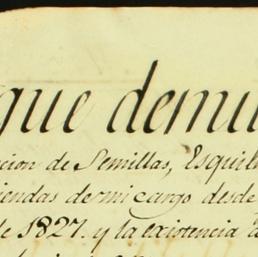 que demu
cion de Semillas, Esquil
iendas demi cargo desde
de 1827. y la existencia